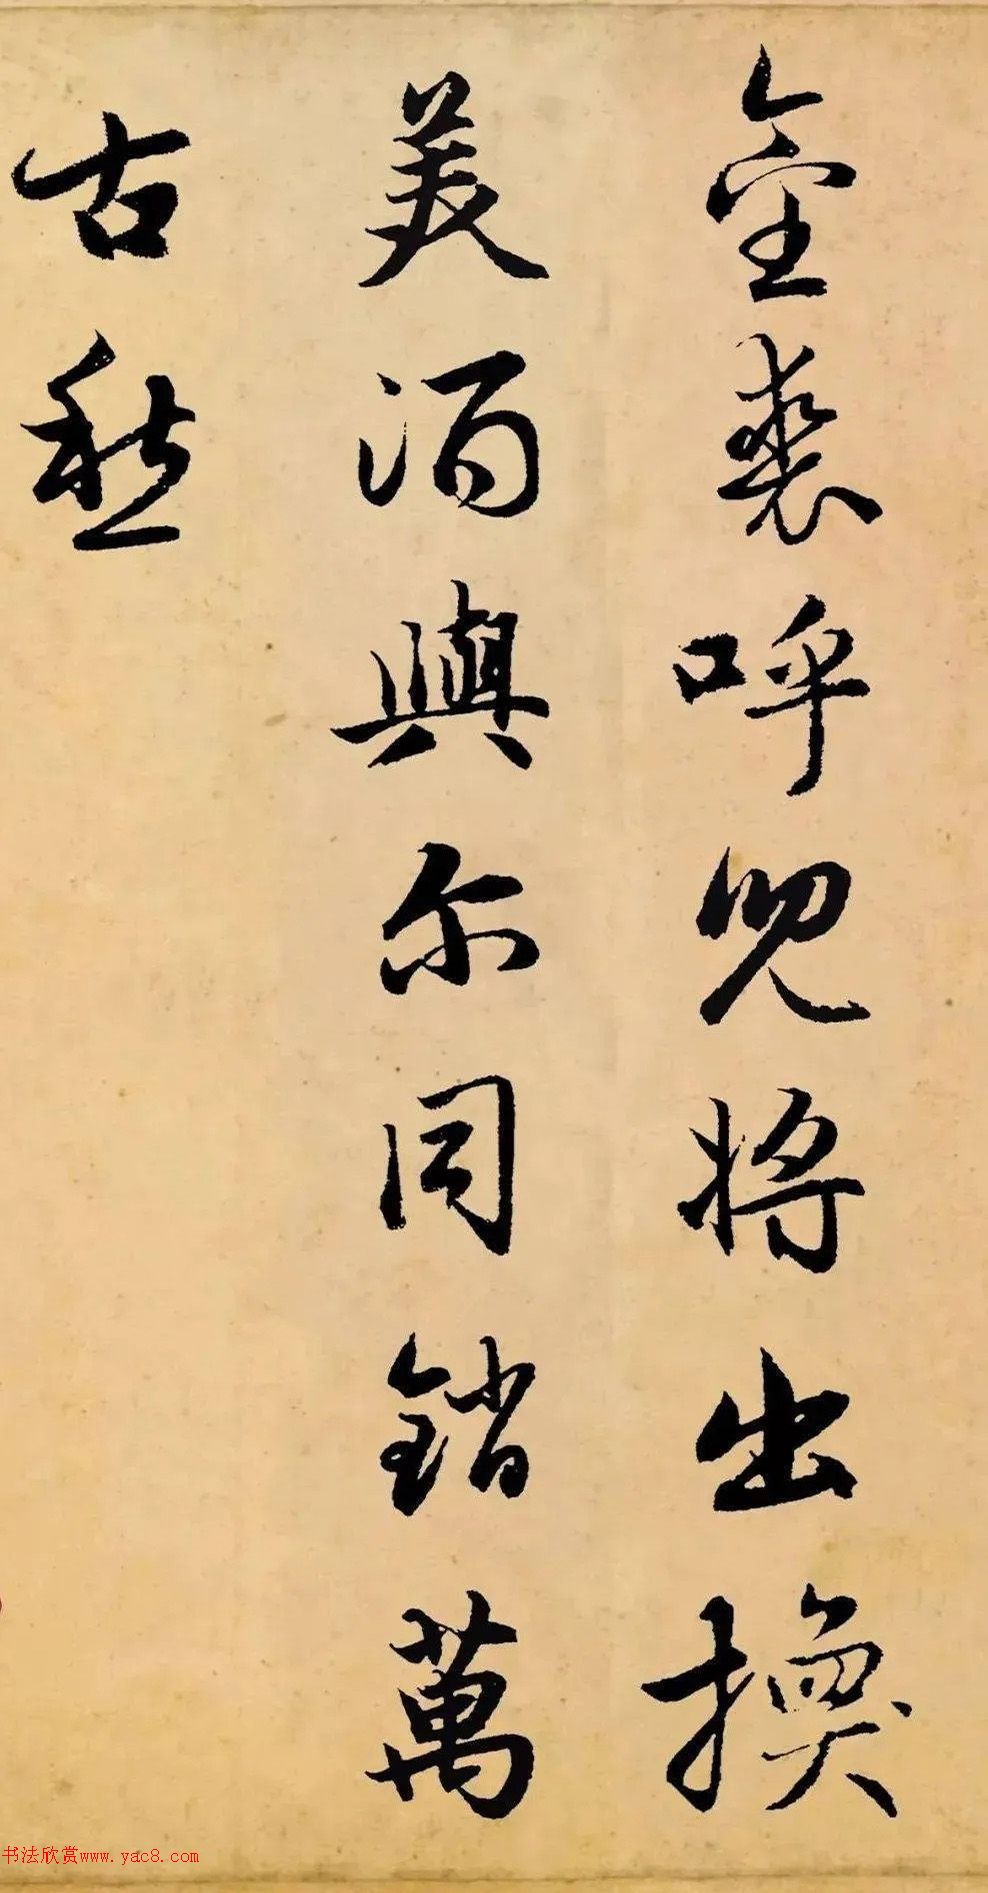 金裘呼兒將出換
美酒與尔同銷萬
古愁
书法欣赏www.yac8.com